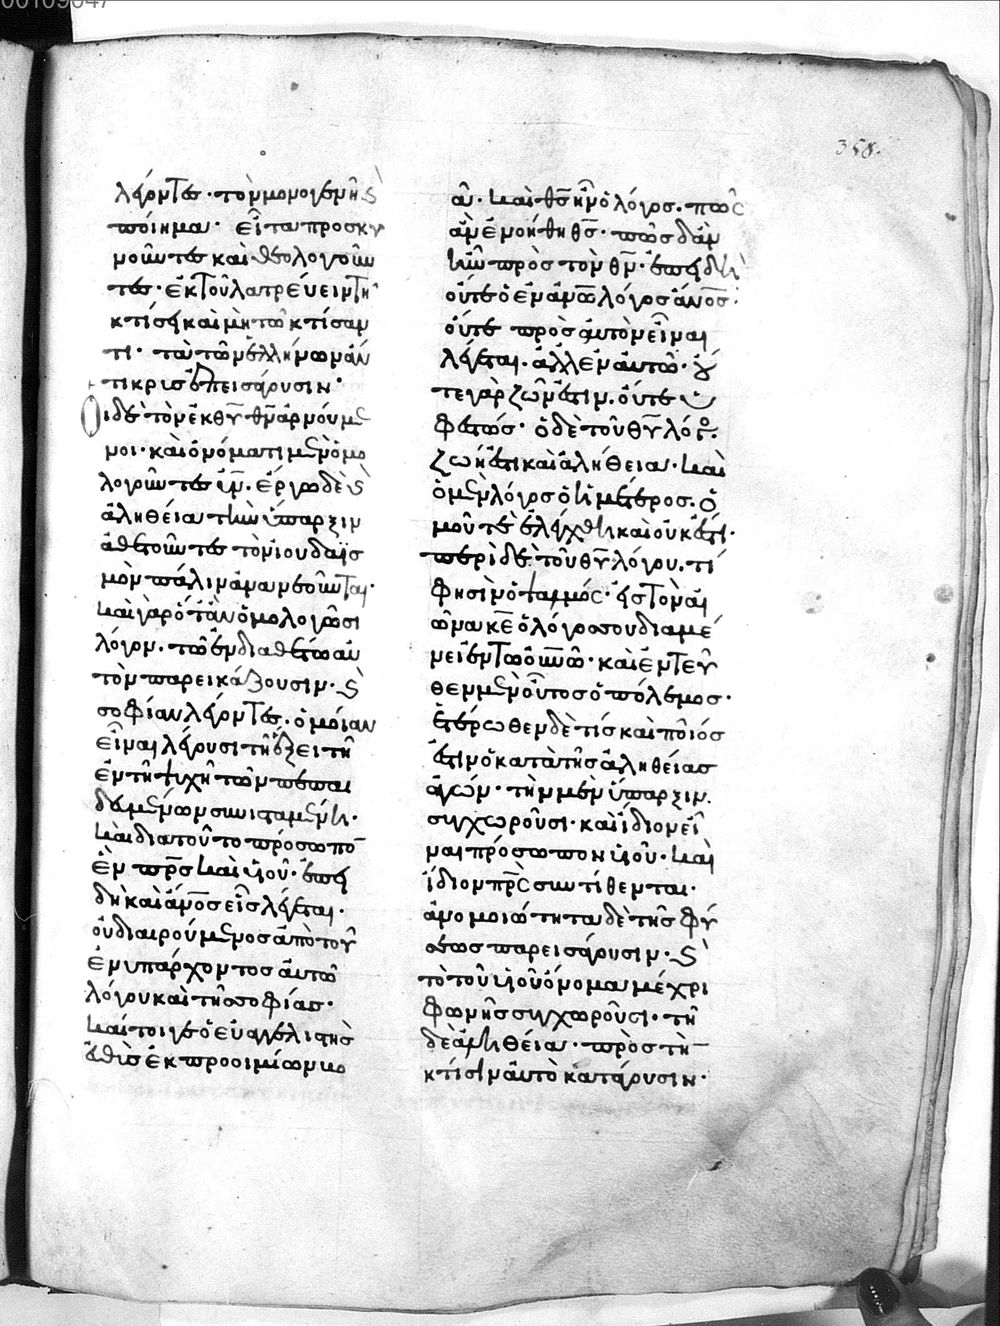 358.
λέγοντες· τὸν μονογενῆ καὶ
ποίημα· εἶτα προσκυ
νοῦντες καὶ θεολογοῦν
τες· ἐκ τοῦ λατρεύειν τῆ
κτίσει καὶ μὴ τῶ κτίσαν
τι· τὰ τῶν ἑλλήνων ἄν
τικρυς ἐπεισάγουσιν·
Οἱ δὲ τὸν ἐκ θυ θν ἀρνούμε
νοι· καὶ ὀνόματι μὲν ὁμο
λογοῦντες υν. ἔργω δὲ καὶ
ἀληθεία τὴν ὕπαρξιν
ἀθετοῦντες τὸν ἰουδαϊσ
μὸν πάλιν ἀνανεοῦνται·
καὶ γὰρ ὅταν ὁμολογῶσι
λόγον. τῶ ἐνδιαθέτω αὐ
τὸν παρεικάζουσιν· καὶ
σοφίαν λέγοντες. ὁμοίαν
εἶναι λέγουσι τῆ ἕξει τῆ
ἐν τῆ ψυχῆ τῶν πεπαι
δευμένων συνισταμένη·
καὶ διὰ τοῦτο πρόσωπον
ἓν πρς καὶ υἱοῦ· ἐπει
δὴ καὶ ανος εἷς λέγεται·
οὐ διαιρούμενος ἀπὸ τοῦ
ἐνυπάρχοντος αὐτῶ
λόγου καὶ τῆς σοφίας·
καίτοιγε ὁ εὐαγγελιστὴς
εὐθὺς ἐκ προοιμίων βο
ᾶ· καὶ θς ἦν ὁ λόγος· πῶς
ἂν ἐμοὶ θη θς· πῶς δ' ἂν
ἦν πρὸς τὸν θν· ἐπειδὴ
οὔτε ὁ ἐν ανω λόγος ανος·
οὔτε πρὸς αὐτὸν εἶναι
λέγεται. ἀλλ' ἐν αὐτῶ· οὔ
τε γὰρ ζῶν ἐστιν. οὔτε ὑ
φεστώς· ὁ δὲ τοῦ θυ λόγος.
ζωή ἐστι καὶ ἀλήθεια· καὶ
ὁ μὲν λόγος ὁ ἡμέτερος. ὁ
μοῦ τε ἐλέχθη καὶ οὐκ ἔστι·
περὶ δὲ τοῦ θυ λόγου. τί
φησὶν ὁ ψαλμός· εἰς τὸν αἰ
ῶνα κε ὁ λόγος σου διαμέ
νει ἐν τῶ ουνω· καὶ ἐντεῦ
θεν μὲν οὗτος ὁ πόλεμος·
ἑτέρωθεν δὲ τίς καὶ ποῖός
ἐστιν ὁ κατὰ τῆς ἀληθείας
ἀγών· τὴν μὲν ὕπαρξιν
συγχωροῦσι· καὶ ἴδιον εἶ
ναι πρόσωπον υἱοῦ· καὶ
ἴδιον πρς συντίθενται·
ἀνομοιότητα δὲ τῆς φύ
σεως παρεισάγουσιν· καὶ
τὸ τοῦ υἱοῦ ὄνομα μέχρι
φωνῆς συγχωροῦσι· τῆ
δὲ ἀληθεία· πρὸς τὴν
κτίσιν αὐτὸ κατάγουσιν·